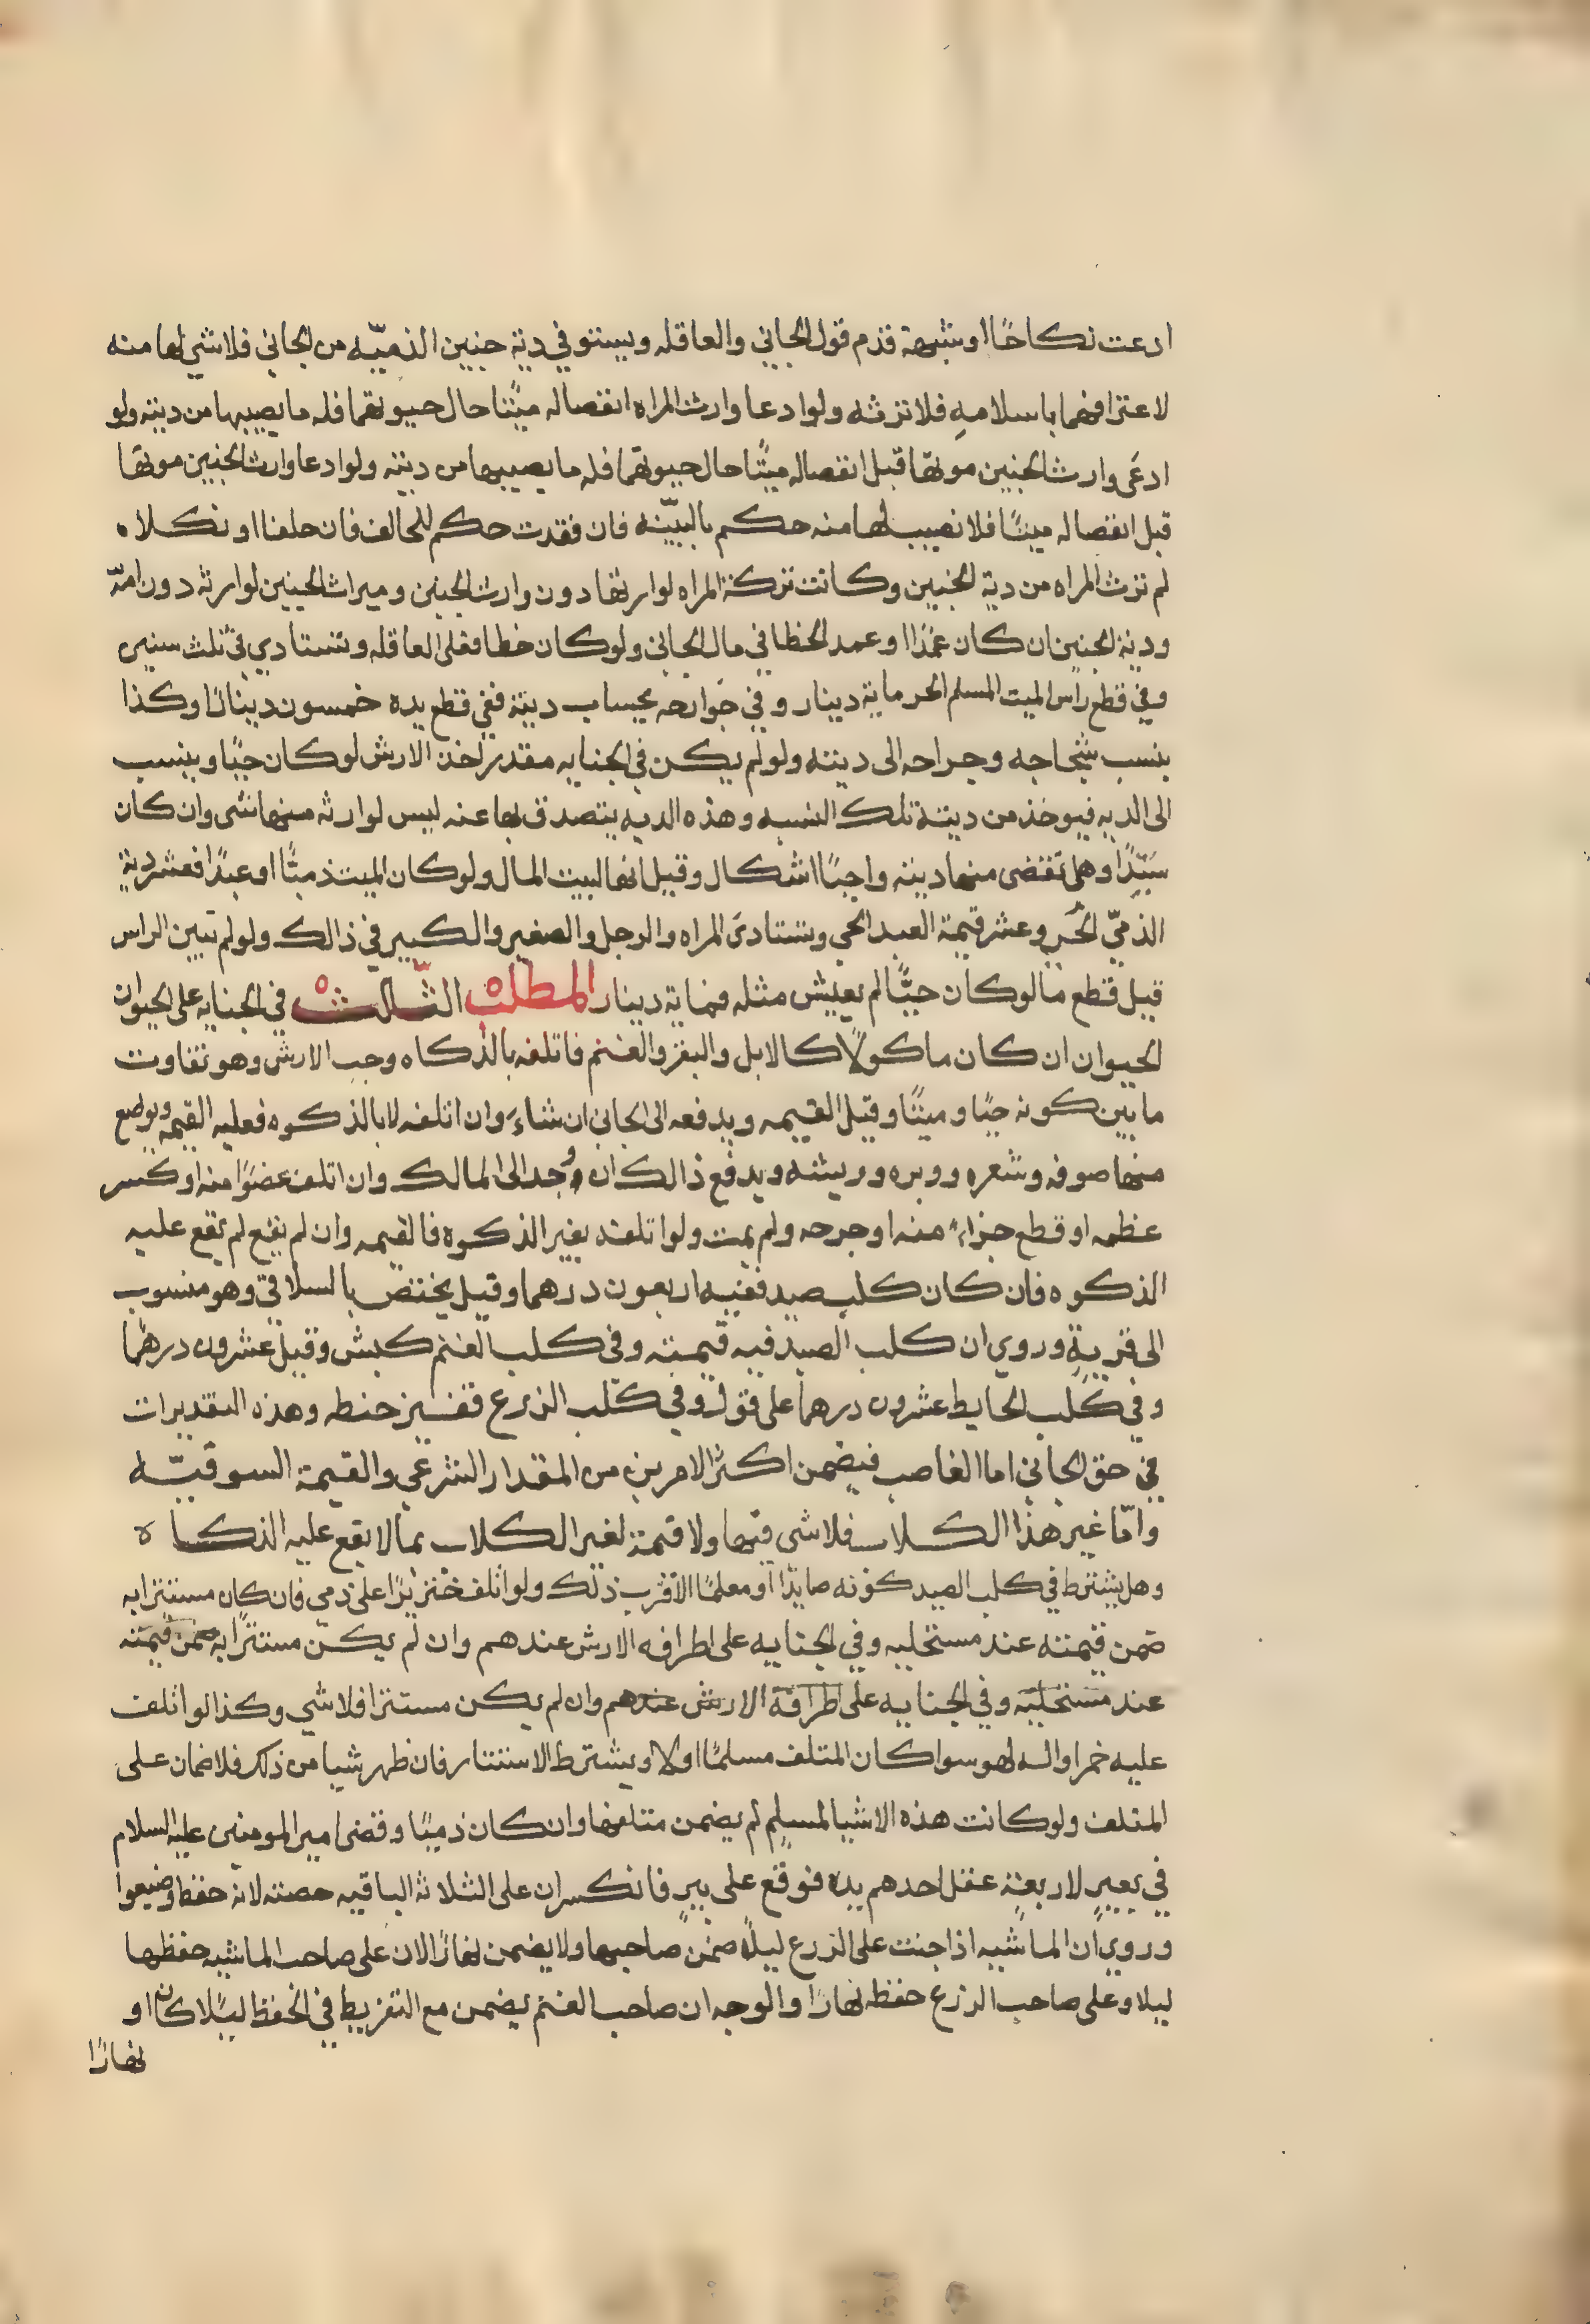 ادعت نكاحًا او شبهة قدم قول الجاني والعاقله ويستو في دية جنين الذميّه من الجاني فلا شي لها منه
لاعترافهما باسلامهِ فلا ترثه ولو ادعا وارث المراه انفصاله ميّتا حال حيوتهما فله ما يصيبها من ديته ولو
ادعى وارث الجنين موتها قبل انفصاله ميّتا حال حيوتهما فله ما يصيبها من ديته ولو ادعا وارث الجنين موتها
قبل انفصاله ميتًا فلا نصيب لها منه حكم بالبيّنه فان فقدت حكم للحالف فان حلفا او نكلاه
لم ترث المراه من دية الجنين وكانت تركة المراه لوارثها دون وارث الجنين وميراث الجنين لوارثه دون امّه
ودية الجنين ان كان عمدًا او عمد الخطا في مال الجاني ولو كان خطا فعلى العاقله وتستادي في ثلث سنين
وفي قطع راس الميت المسلم الحر ماية دينار وفي جوارحه بحساب ديته ففي قطع يده خمسون دينارًا وكذا
بنسب شجاجه وجراحه الى ديته ولو لم يكن في الجنايه مقدر اخذ الارش لو كان حيًا وينسب
الى الديه فيوخذ من ديته تلك النسبه وهذه الديه يتصدق بها عنه ليس لوارثه منها شي وان كان
سيّدًا وهل تقضى منها دينه واجبًا اشكال وقيل انها لبيت المال ولو كان الميت ذميًّا او عبدًا فعشر دية
الذميّ الحر وعشر قيمة العبد الحي ويتستادى المراه والرجل والصغير والكبير في ذالك ولو لم تبين الراس
قبل قطع ما لو كان حيًّا لم يعيش مثله فماية دينار المطلب الثالث في الجنايه على الحيوان
الحيوان ان كان ماكولًا كالابل والبقر والغنم فاتلفه بالذكاه وجب الارش وهو تفاوت
ما بين كونه حيًا وميتًا وقيل القيمه ويدفعه الى الجاني ان شاءَ وان اتلفه لا بالذكوه فعليه القيمه ويوضع
منها صوفه وشعره ووبره وريشه ويدفع ذالك ان وُجد الى المالك وان اتلف عضوًا منه او كسر
عظمه او قطع جزاءً منه او جرحه ولم يمت ولو اتلفه بغير الذكوه فالقيمه وان لم يقع لم يقع عليه
الذكوه فان كان كلب صيد ففيه اربعون درهما وقيل يختص بالسلاقي وهو منسوب
الى قريةٍ وروي ان كلب الصيد فيه قيمته وفي كلب الغنم كبش وقيل عشرون درهما
وفي كلب الحايط عشرون درهما على قول وفي كلب الزرع قفيز حنطه وهذه التقديرات
في حق الجاني اما الغاصب فيضمن اكثر الامرين من المقدار الشرعي والقيمة السوقيّه
وامّا غير هذا الكلاب فلا شي فيها ولا قيمة لغير الكلاب مما لا يقع عليه الذكاه
وهل يشترط في كلب الصيد كونه صايدًا او معلمًا الاقرب ذلك ولو اتلف خنزيرًا على ذمي فان كان مستترا به
ضمن قيمته عند مستحليه وفي الجنايه على اطرافه الارش عندهم وان لم يكن مستترًا به ضمن قيمته
عند مستحليه وفي الجنايه على اطرافه الارش عندهم وان لم يكن مستترا فلا شي وكذا لو اتلف
عليه خمرا واله لهو سوا كان المتلف مسلمًا اولا ويشترط الاستتار فان ظهر شيا من ذلك فلا ضمان على
المتلف ولو كانت هذه الاشيا لمسلم لم يضمن متلفها وان كان ذميًا وقضى امير المومنين عليه السلام
في بعيرٍ لاربعةٍ عقل احدهم يده فوقع على بيرٍ فانكسر ان على الثلاثه الباقيه حصته لانه حفظ وضيعوا
وروي ان الماشيه اذا جنت على الزرع ليلًا ضمن صاحبها ولا يضمن نهارًا لان على صاحب الماشيه حفظها
ليلا وعلى صاحب الزرع حفظه نهارًا والوجه ان صاحب الغنم يضمن مع التفريط في الحفظ ليلًا كان او
نهارًا